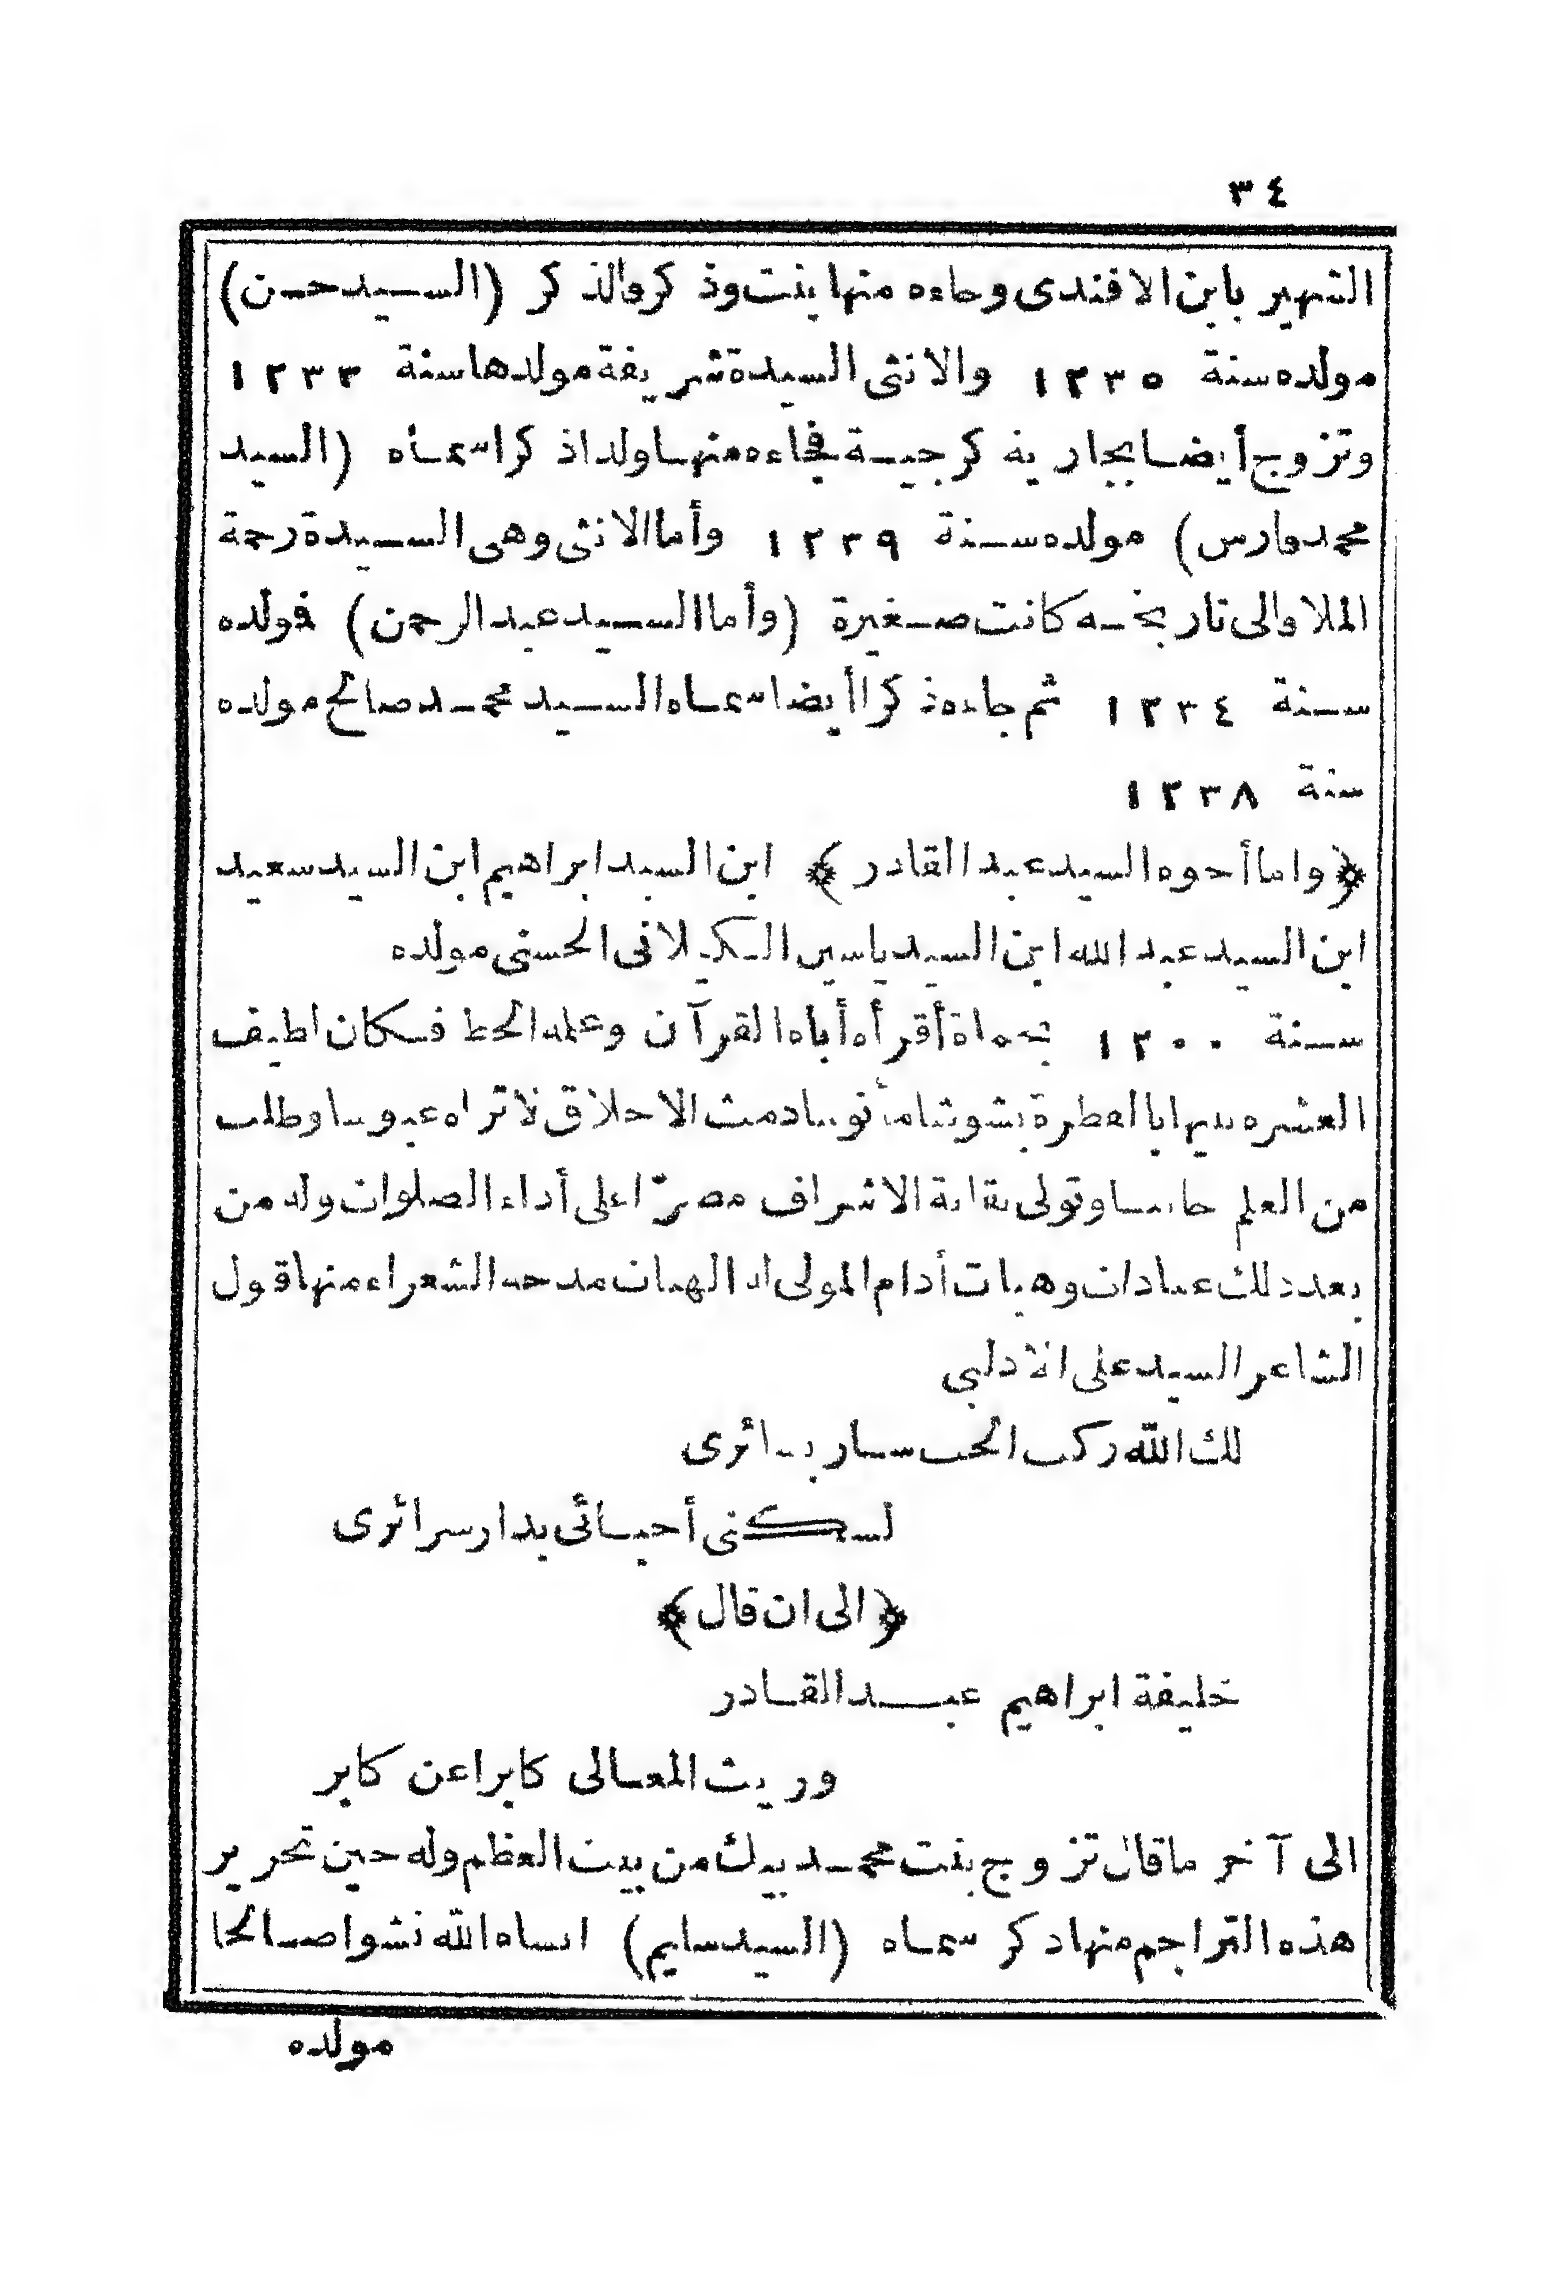 ٣٤
الشهير بابن الافندى وجاءه منها بنت وذكر فالذكر (السيد حسن)
مولده سنة ١٢٣٥ والانثى السيدة شريفة مولدها سنة ١٢٣٣
وتزوج أيضا بجارية كرجية فجاءه منها ولد اذكرا سماه (السيد
محمد فارس) مولده سنة ١٢٣٩ وأما الانثى وهى السيدة رحمة
الملا والى تاريخه كانت صغيرة (وأما السيد عبد الرحمن) فولده
سنة ١٢٣٤ ثم جاءه ذكرا أيضا سماه السيد محمد صالح مولده
سنة ١٢٣٨
﴿واما أخوه السيد عبد القادر﴾ ابن السيد ابراهيم ابن السيد سعيد
ابن السيد عبد الله ابن السيد ياسين الكيلانى الحسنى مولده
سنة ١٢٠٠ بحماة أقرأه أباه القرآن وعلمه الخط فكان لطيف
العشره نبيها بالفطرة بشوشا مأنوسا دمث الاخلاق لا تراه عبوسا وطلب
من العلم جانبا وتولى نقابة الاشراف مصرّا على أداء الصلوات وله من
بعد ذلك عبادات وهبات أدام المولى له الهبات مدحه الشعراء منها قول
الشاعر السيد على الادلبي
لك الله ركب الحب سار بدائرى
لسكنى أحبائى بدار سرائرى
﴿الى ان قال﴾
خليفة ابراهيم عبد القادر
وريث المعالى كابرا عن كابر
الى آخر ما قال تزوج بنت محمد بيك من بيت العظم وله حين تحرير
هذه التراجم منها ذكر سماه (السيد سليم) انساه الله نشوا صالحا
مولده